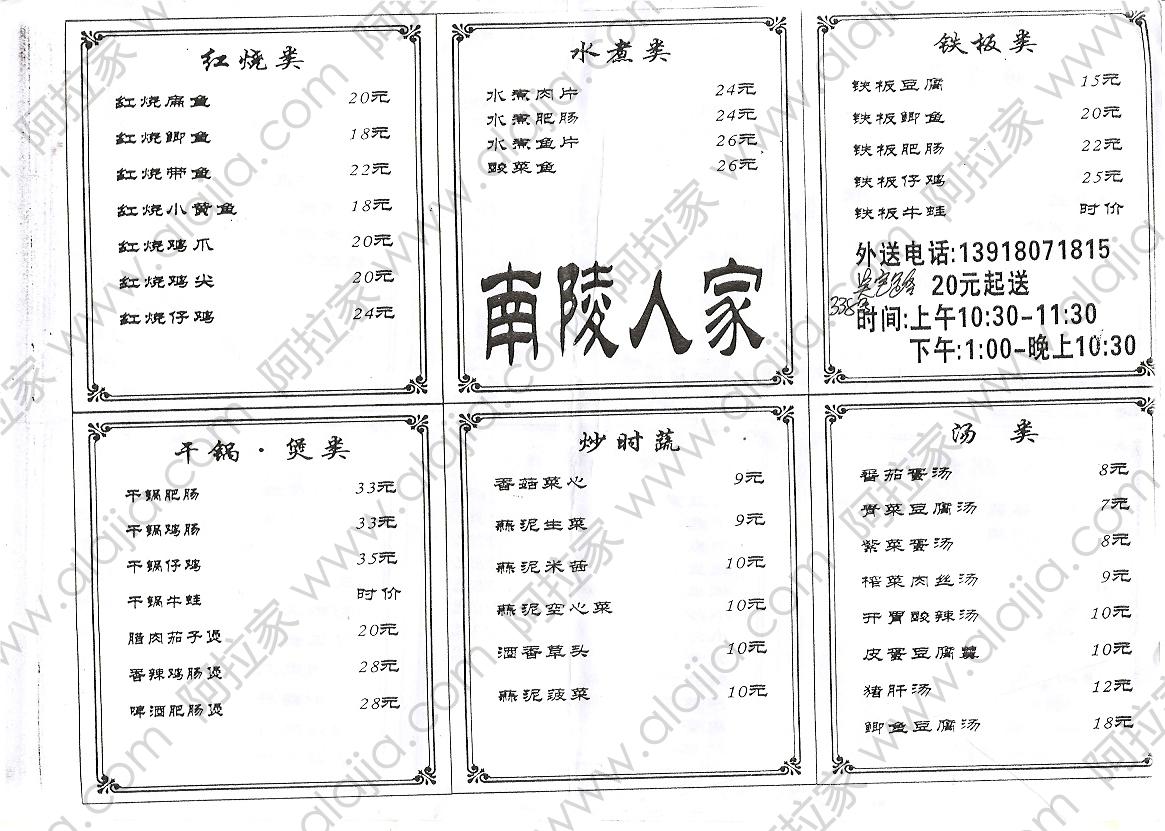 红烧类
红烧扁鱼 20元
红烧鲫鱼 18元
红烧带鱼 22元
红烧小黄鱼 18元
红烧鸡爪 20元
红烧鸡尖 20元
红烧仔鸡 24元
水煮类
水煮肉片 24元
水煮肥肠 24元
水煮鱼片 26元
酸菜鱼 26元
南陵人家
铁板类
铁板豆腐 15元
铁板鲫鱼 20元
铁板肥肠 22元
铁板仔鸡 25元
铁板牛蛙 时价
外送电话:13918071815
20元起送
338
时间:上午10:30-11:30
下午:1:00-晚上10:30
干锅·煲类
干锅肥肠 33元
干锅鸡肠 33元
干锅仔鸡 35元
干锅牛蛙 时价
腊肉茄子煲 20元
香辣鸡肠煲 28元
啤酒肥肠煲 28元
炒时蔬
香菇菜心 9元
蒜泥生菜 9元
蒜泥米苋 10元
蒜泥空心菜 10元
酒香草头 10元
蒜泥菠菜 10元
汤 类
番茄蛋汤 8元
青菜豆腐汤 7元
紫菜蛋汤 8元
榨菜肉丝汤 9元
开胃酸辣汤 10元
皮蛋豆腐羹 10元
猪肝汤 12元
鲫鱼豆腐汤 18元
阿拉家 www.alajia.com